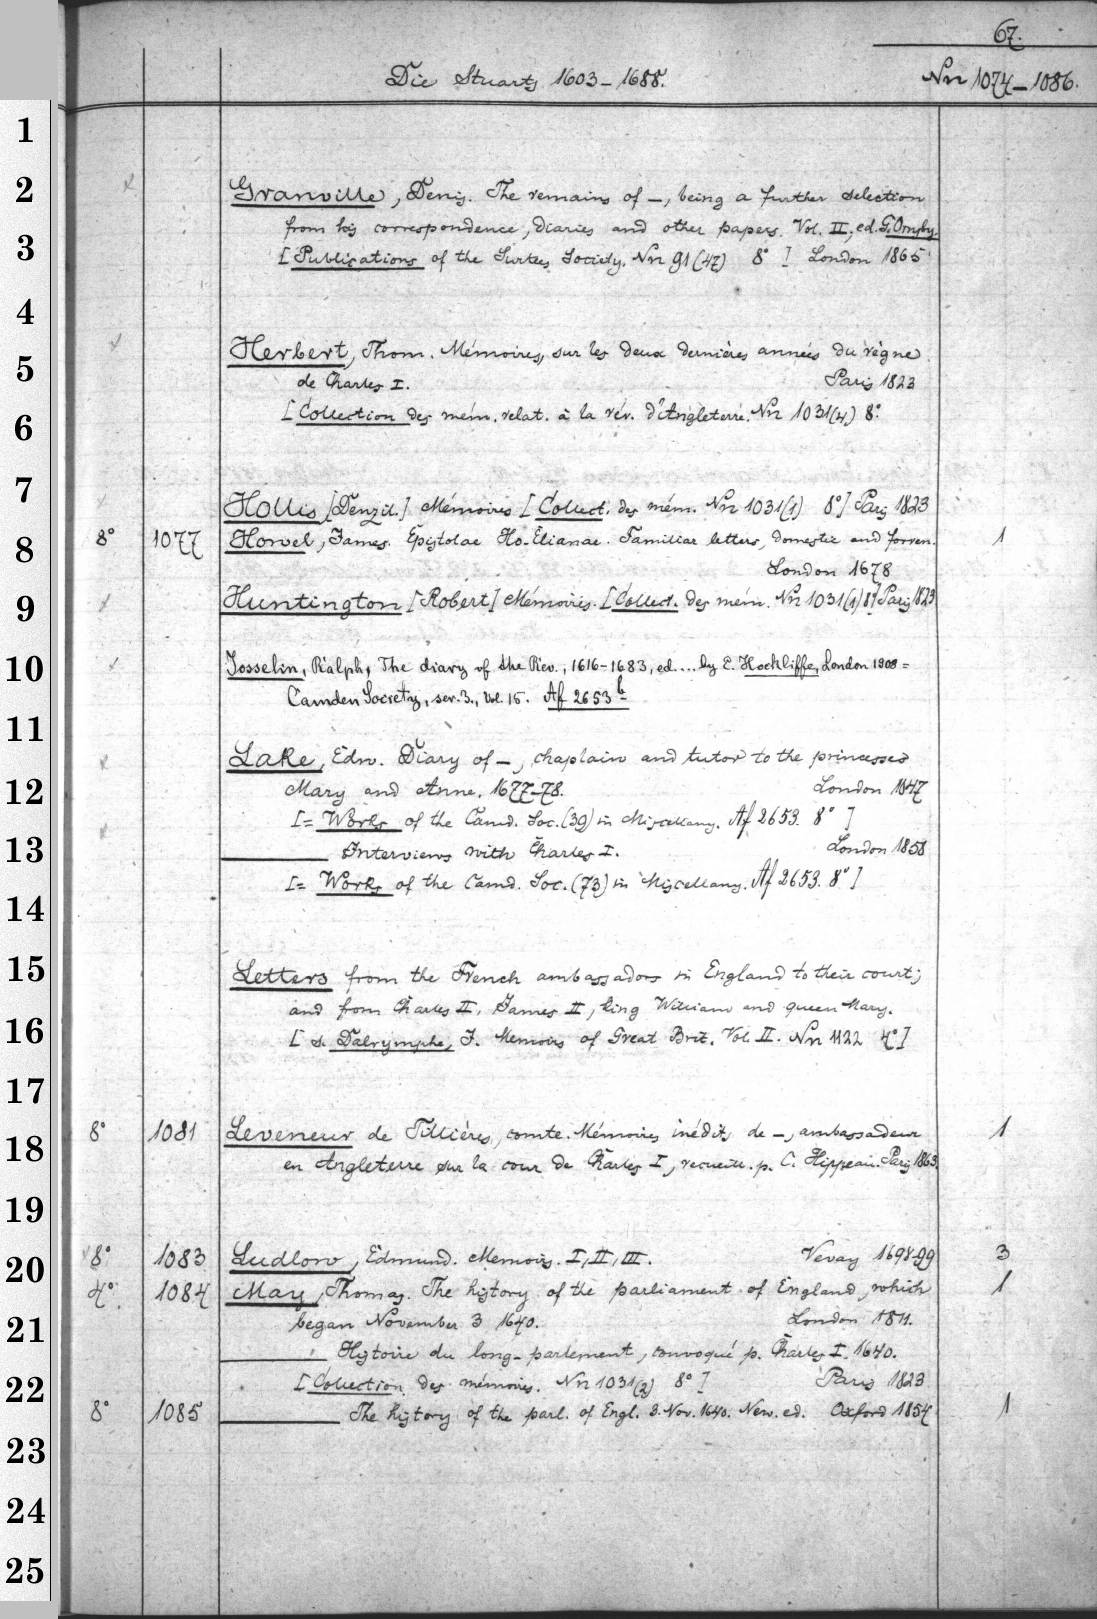 67.
Die Stuarts 1603–1688. Nn 1074–1086.
1
2
Granville, Denis. The remains of –, being a further selection
from his correspondence, diaries and other papers. Vol. II, ed. G. Ornsby.
3
[Publications of the Surtees Society. Nn 91(47) 8° ] London 1865
4
Herbert, Thom. Mémoires, sur les deux dernières années du règne
5
de Charles I. Paris 1823
[Collection des mém. relat. à la rév. d'Angleterre. Nn 1031(4) 8°.
6
7
Hollis [Denzil.] Mémoires [Collect. des mém. Nn 1031(1) 8°] Paris 1823
8
8° 1077 Howel, James. Epistolae Ho-Elianae. Familiar letters, domestic and forren. 1
London 1678
9
Huntington [Robert] Mémoires. [Collect. des mém. Nn 1031(1) 8°] Paris 1823
10
Josselin, Ralph, The diary of the Rev., 1616-1683, ed.... by E. Hockliffe, London 1908 =
Camden Society, ser. 3., Vol. 15. Af 2653 b
11
Lake, Edw. Diary of –, chaplain and tutor to the princesses
12
Mary and Anne. 1677–78. London 1847
[= Works of the Camd. Soc. (39) in Miscellany. Af 2653. 8° ]
13
Interviews with Charles I. London 1858
[= Works of the Camd. Soc. (73) in Miscellany. Af 2653. 8° ]
14
15
Letters from the French ambassadors in England to their court;
and from Charles II, James II, king William and queen Mary.
16
[ s. Dalrymphe, J. Memoirs of Great Brit. Vol. II. Nn 1122 4°]
17
8° 1081 Leveneur de Tillières, comte. Mémoires inédits de –, ambassadeur 1
18
en Angleterre sur la cour de Charles I, recueill. p. C. Hippeau. Paris 1863.
19
8° 1083 Ludlow, Edmund. Memoirs. I, II, III. Vevay 1698-99 3
20
4°. 1084 May, Thomas. The history of the parliament of England, which 1
21
began November 3 1640. London 1811.
Histoire du long-parlement, convoqué p. Charles I. 1640.
22
[Collection des mémoires. Nn 1031(2) 8° ] Paris 1823
8° 1085 The history of the parl. of Engl. 3. Nov. 1640. New. ed. Oxford 1854 1
23
24
25